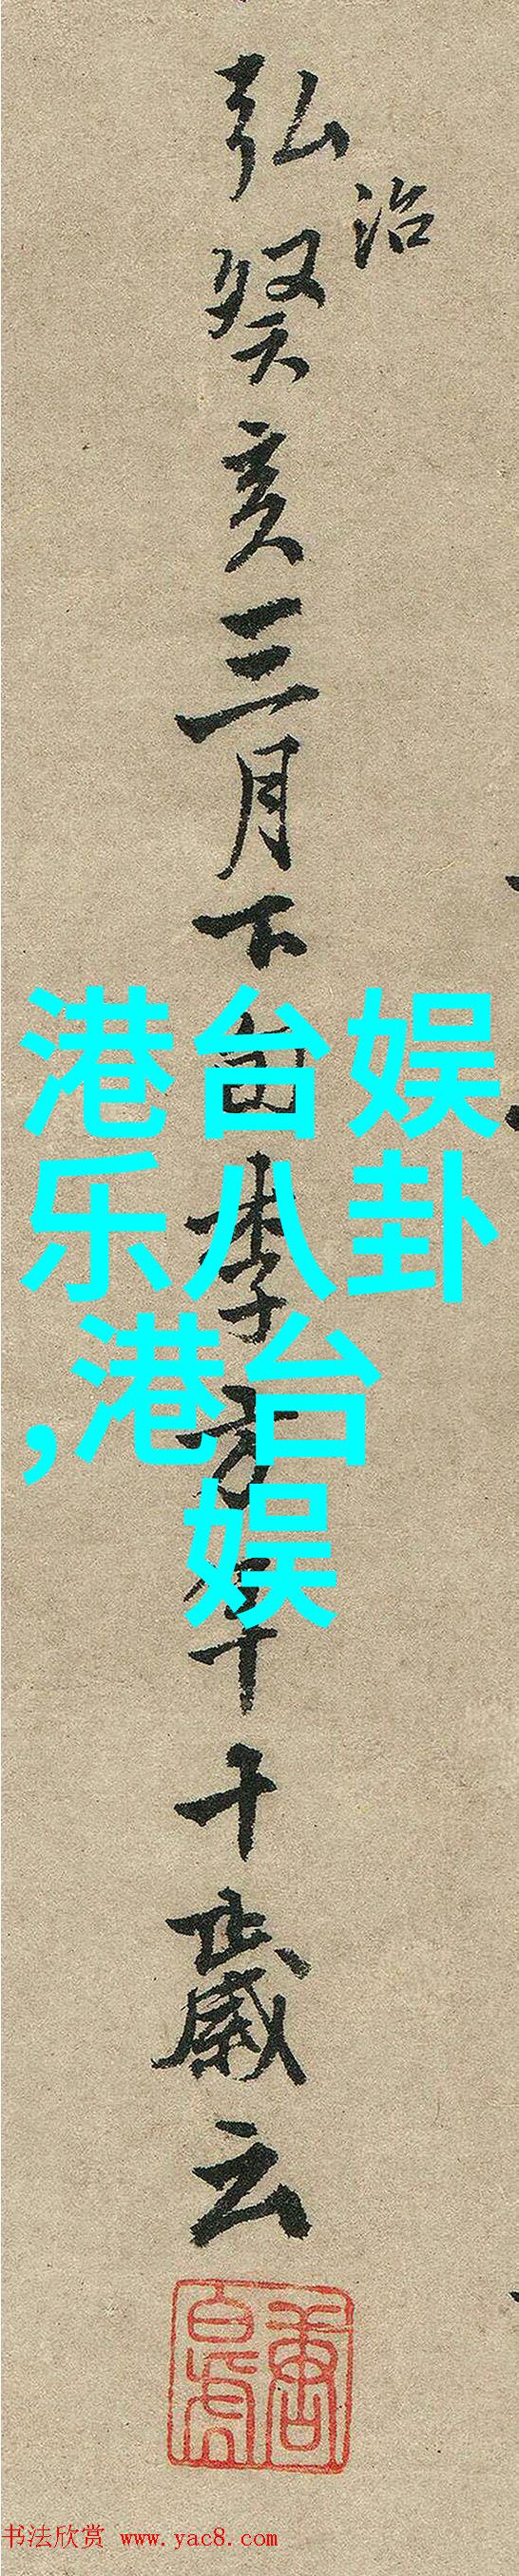 弘治癸亥三月下旬李方年十歲云
港台娱
乐八卦
,港台
娱
书法欣赏 www.yac8.com